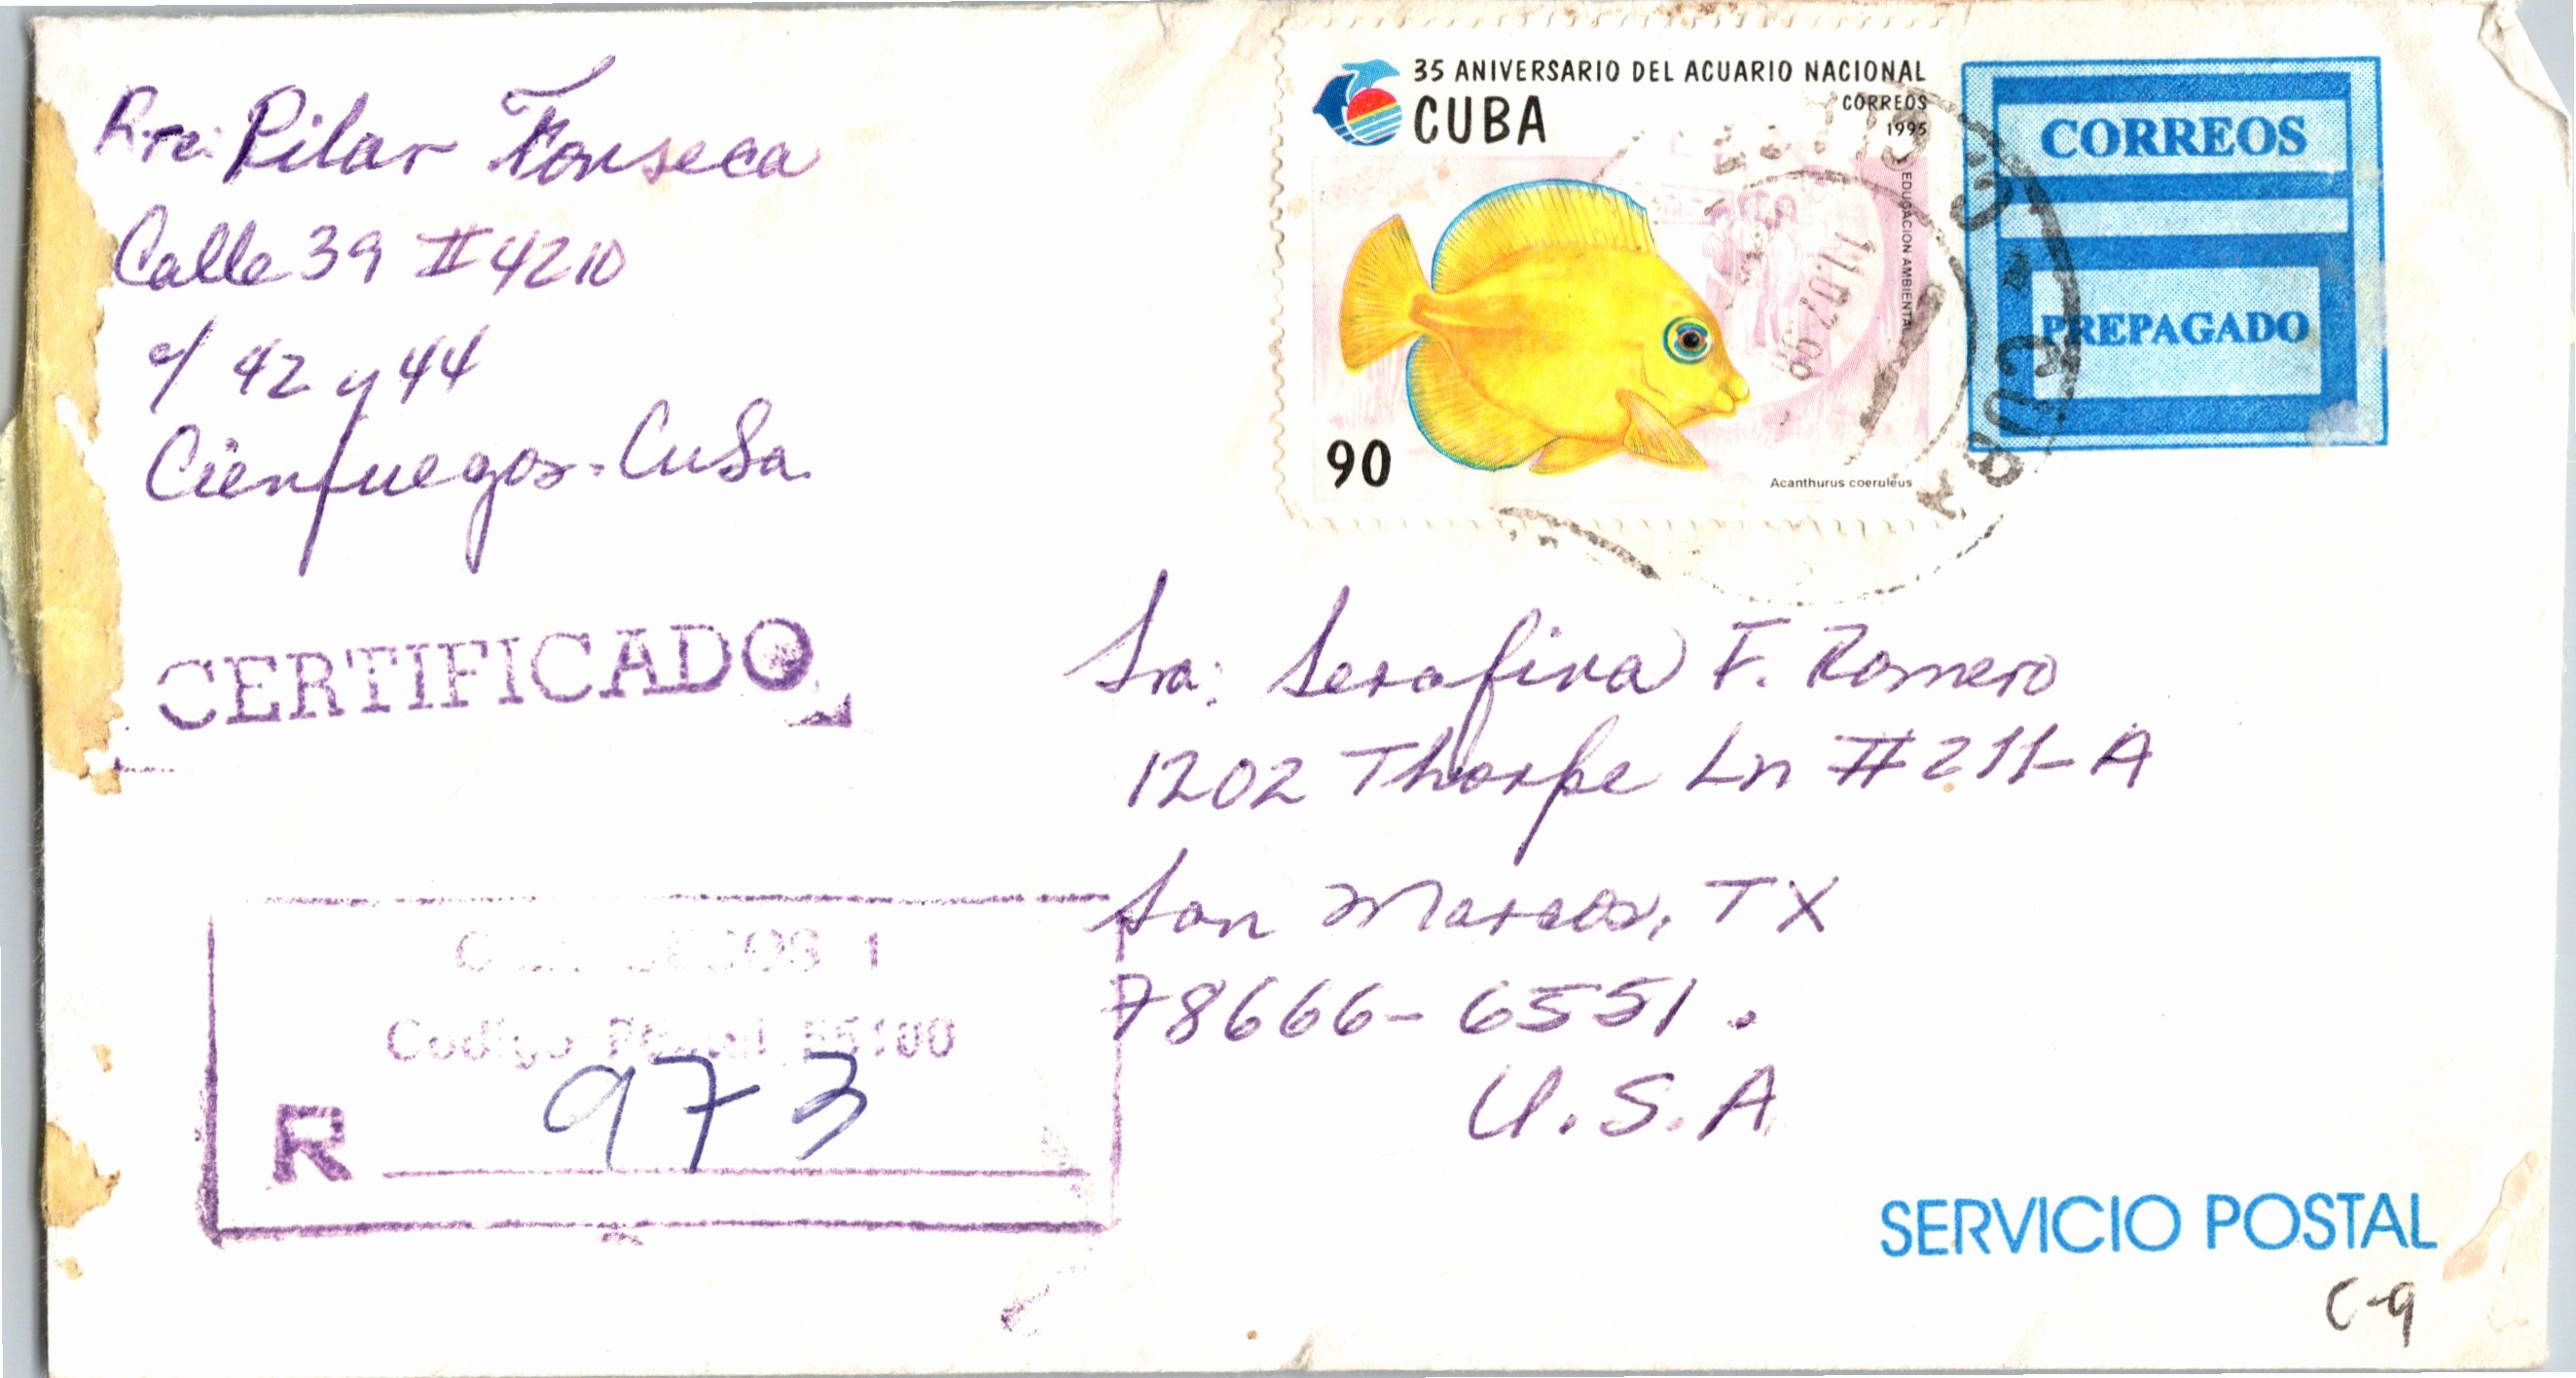 Rte: Pilar Fonseca
Calle 39 # 4210
e/ 42 y 44
Cienfuegos. Cuba.
CERTIFICADO
35 ANIVERSARIO DEL ACUARIO NACIONAL
CUBA
CORREOS
1995
EDUCACION AMBIENTAL
90
Acanthurus coeruleus
CUBA
CORREOS
PREPAGADO
Sra: Serafina F. Romero
1202 Thorpe Ln # 211-A
San Marcos, TX
78666-6551.
U.S.A
1
Codigo Postal 55100
R 973
SERVICIO POSTAL
C-9